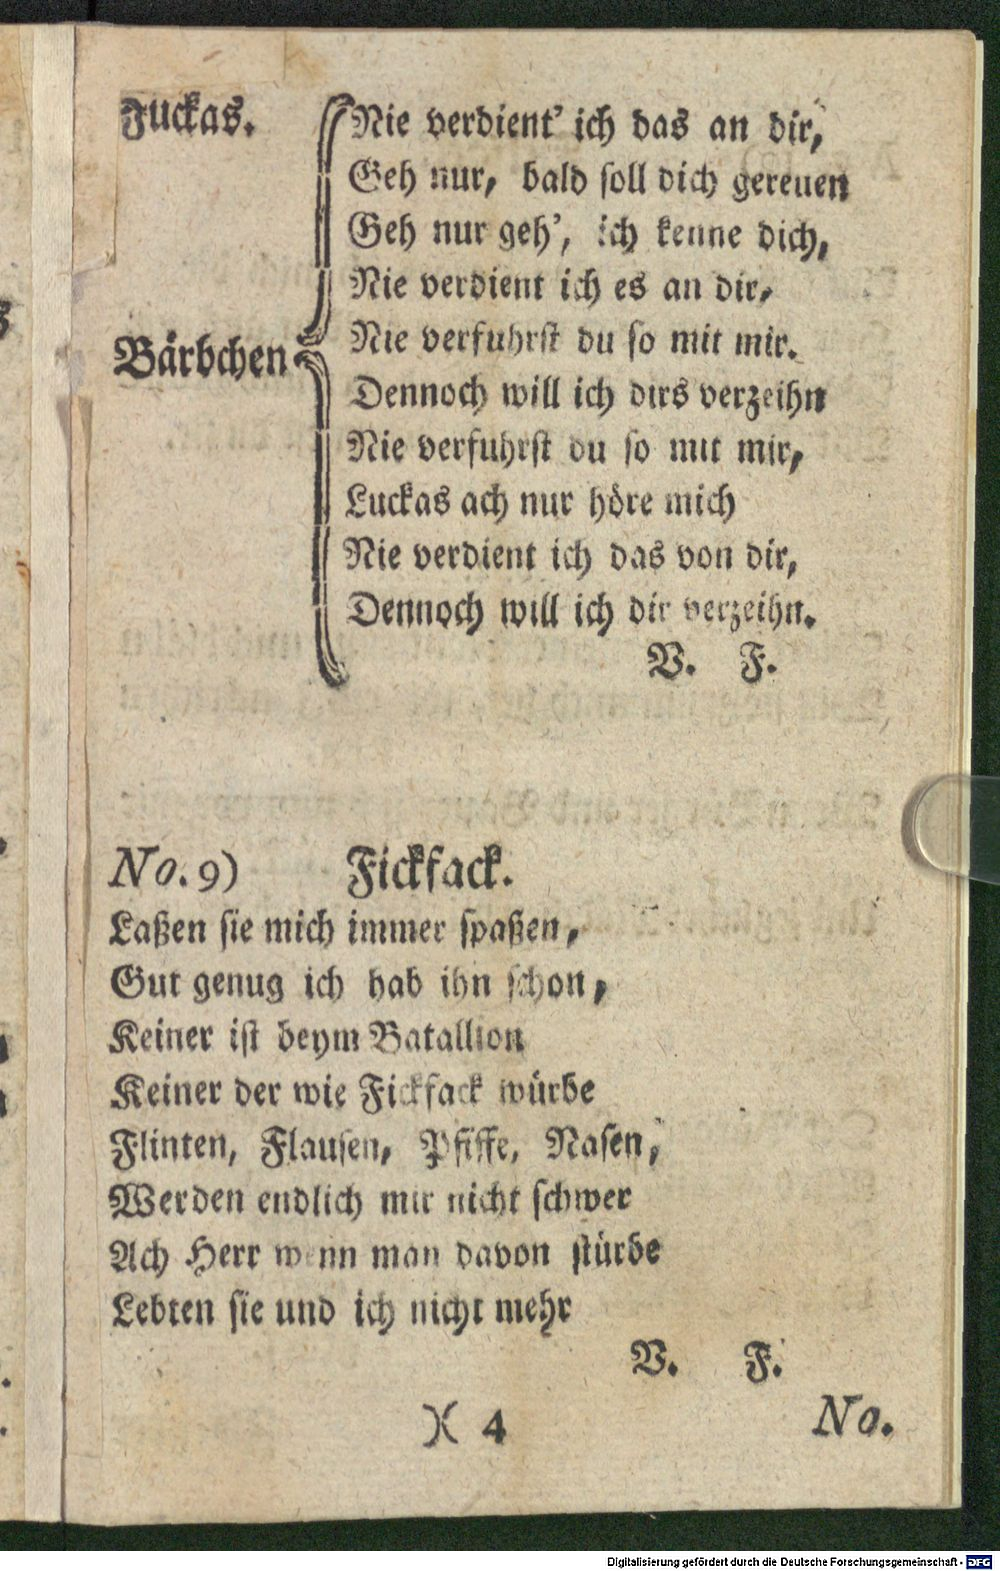 Luckas.
Nie verdient' ich das an dir,
Geh nur, bald soll dich gereuen
Geh nur geh', ich kenne dich,
Nie verdient ich es an dir,
Bärbchen
Nie verfuhrst du so mit mir.
Dennoch will ich dirs verzeihn
Nie verfuhrst du so mit mir,
Luckas ach nur höre mich
Nie verdient ich das von dir,
Dennoch will ich dir verzeihn.
V. F.
No. 9) Fickfack.
Laßen sie mich immer spaßen,
Gut genug ich hab ihn schon,
Keiner ist beym Batallion
Keiner der wie Fickfack würbe
Flinten, Flausen, Pfiffe, Nasen,
Werden endlich mir nicht schwer
Ach Herr wenn man davon stürbe
Lebten sie und ich nicht mehr
V. F.
)( 4 No.
Digitalisierung gefördert durch die Deutsche Forschungsgemeinschaft - DFG